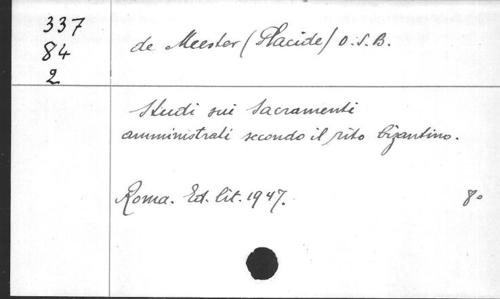 337
84
2
de Meester (Placide) O.S.B.
Studi sui Sacramenti
amministrati secondo il rito bizantino.
Roma. Ed. lit. 1947. 8º